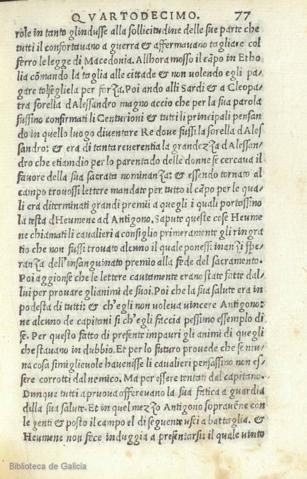 QVARTODECIMO. 77
role in tanto glindusse alla sollicitudine delle sue parte che
tutti il confortauano a guerra & affermauano tagliare col
ferro le legge di Macedonia. Allhora mosso il cāpo in Etho
lia cōmando la taglia alle cittade & non uolendo egli pa-
gare tolsegliela per forza. Poi ando alli Sardi & a Cleopa
tra sorella dAlessandro magno accio che per la sua parola
fussino confirmati li Centurioni & tutti i principali pensan
do in quello luogo diuentare Re doue fussi la sorella dAles
sandro: & era di tanta reuerentia la grandezza dAlessan
dro che etiandio per lo parentado delle donne se cercaua il
fauore della sua sacrata nominanza & essendo tornato al
campo trouossi lettere mandate per tutto il cāpo per le qua
li era diterminati grandi premii a quegli i quali portossino
la testa dHeumene ad Antigono. Sapute queste cose Heume
ne chiamati li caualieri a consiglio primeramente gli ringra
tio che non fussi trouato alcuno il quale ponessi inanzi spe
ranza dell'insanguinato premio alla fede del sacramento.
Poi aggionse che le lettere cautamente erano state fatte dal
lui per prouare gli animi de suoi. Poi che la sua salute era in
podesta di tutti & ch'egli non uoleua uincere Antigono:
ne alcuno de capitani si ch'egli faccia pessimo esemplo di
se. Per questo fatto di presente impauri gli animi di quegli
che stauano in dubbio. Et per lo futuro prouede che se niu
na cosa simiglieuole hauenisse li caualieri pensassino non es
sere corrotti dal nemico. Ma per essere tentati dal capitano.
Dunque tutti a pruoua offereuano la sua fatica a guardia
dlla sua salute. Et in quel mezzo Antigono soprauēne con
le genti & posto il campo el di seguente usci a battaglia. &
Heumene non fece induggia a presentarsi: il quale uinto
Biblioteca de Galicia